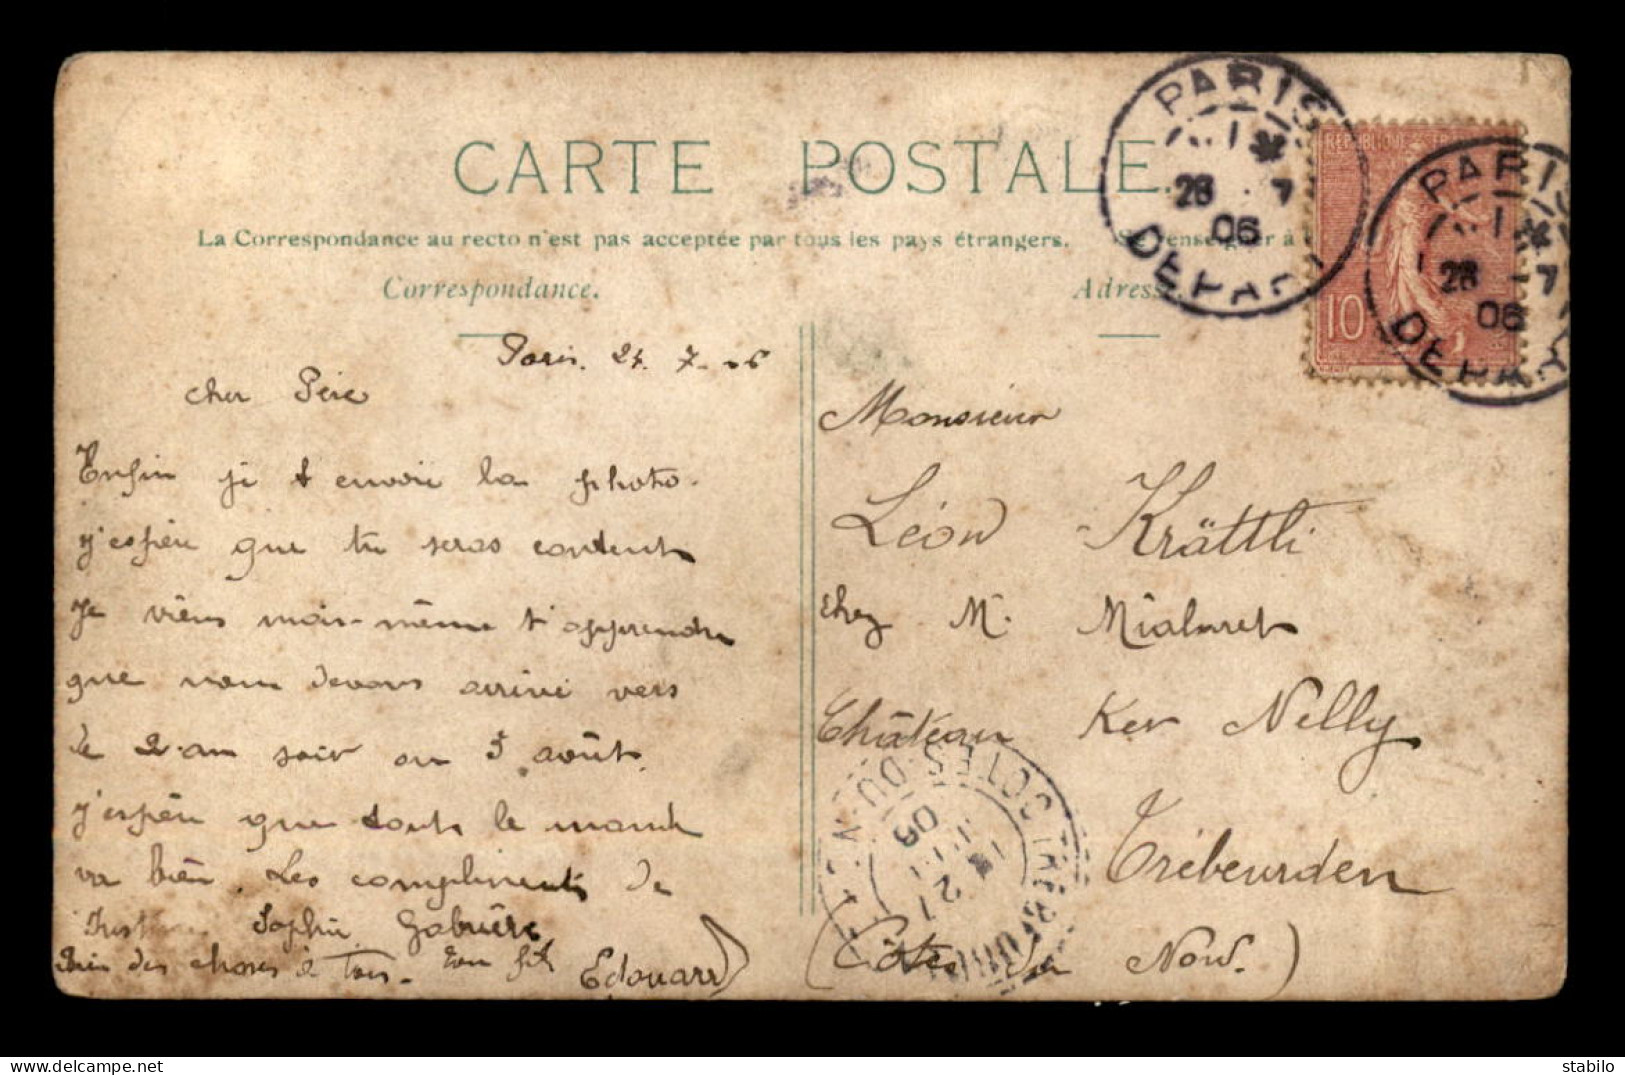 CARTE POSTALE
La Correspondance au recto n'est pas acceptée par tous les pays étrangers. Se renseigner à
Correspondance.
Adresse.
PARIS
28 7
06
DEPART
REPUBLIQUE
10
PARIS
28 7
06
DEPART
Paris. 24. 7. 06
cher Père
Enfin je t envoie la photo.
j'espère que tu seras content
je viens moi-même t'apprendre
que nous devons arrivé vers
le 2 au soir ou 3 août.
j'espère que toute le monde
va bien. Les compliments de
Sophie
des choses à Tous. Ton fils Edouard
Monsieur
Léon Krättli
chez M. Mialaret
Château Ker Nelly
Trébeurden
(Côtes du Nord.)
COTES-DU-N
06
delcampe.net stabilo